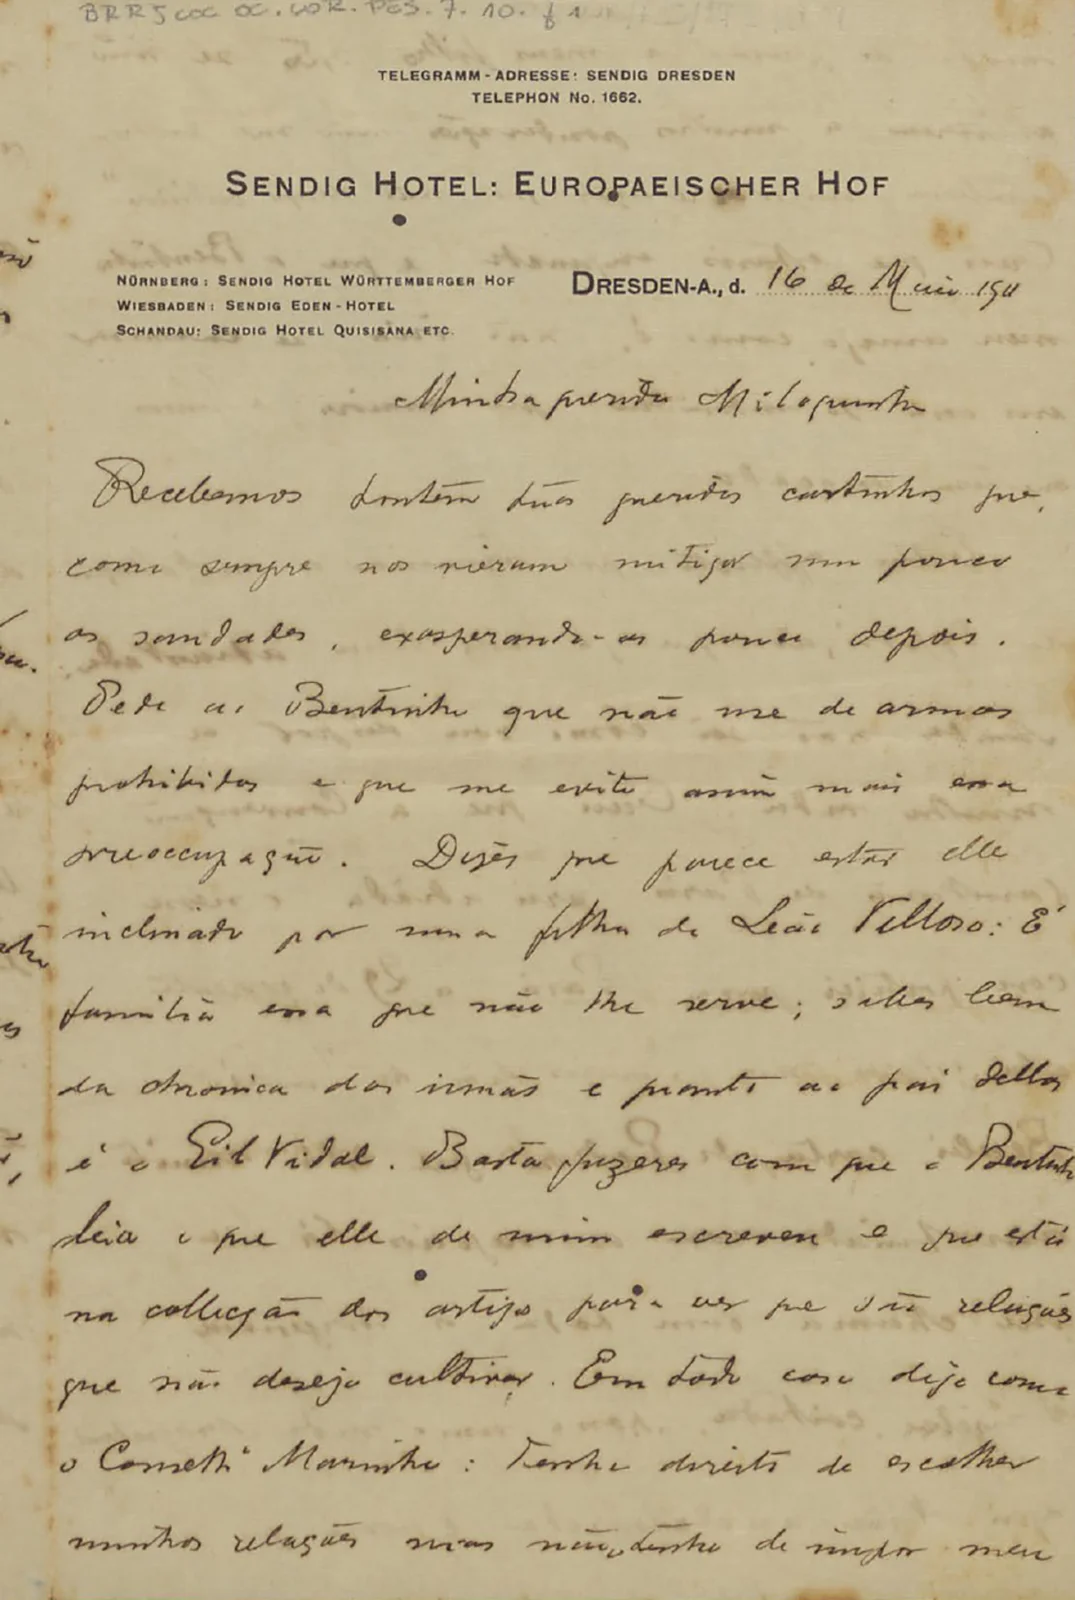 BRRJCOC OC. COR. PES. 7. 10. f 1
TELEGRAMM-ADRESSE: SENDIG DRESDEN
TELEPHON No. 1662.
SENDIG HOTEL: EUROPAEISCHER HOF
NÜRNBERG: SENDIG HOTEL WÜRTTEMBERGER HOF
WIESBADEN: SENDIG EDEN-HOTEL
SCHANDAU: SENDIG HOTEL QUISISANA ETC.
DRESDEN-A., d. 16 de Maio 1911
Minha querida Miloquinha
Recebemos hontem tuas queridas cartinhas que,
como sempre nos vieram mitigar um pouco
as saudades, exasperando-as pouco depois.
Pede ao Bentinho que não use de armas
prohibidas e que me evite assim mais essa
preoccupação. Dizes que parece estar elle
inclinado por uma filha do Leão Velloso: É
familia essa que não lhe serve; sabes bem
da chronica das irmãs e quanto ao pai dellas
é o Gil Vidal. Basta fazeres com que o Bentinho
leia o que elle de mim escreveu e que está
na collecção dos artigos para ver que são relações
que não desejo cultivar. Em todo caso digo como
o Marinho: Tenho direito de escolher
minhas relações mas não tenho de impor meu